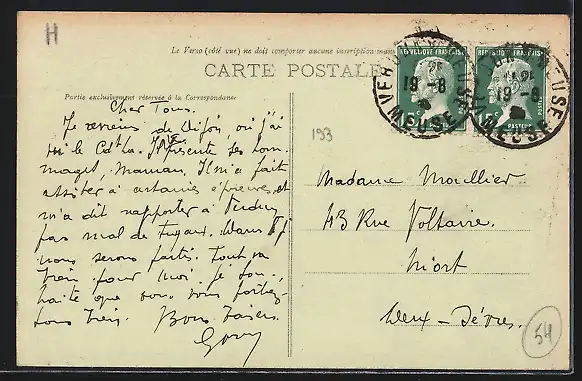 H
Le Verso (côté vue) ne doit comporter aucune inscription man
CARTE POSTALE
Partie exclusivement réservée à la Correspondance
Cher Tous.
Je reviens de Dijon, où j'ai
le Cdt La. présente ses hom
mages, Maman. Il m'a fait
assister à certaines épreuves et
m'a dit rapporter à Verdun
pas mal de tuyaux. Dans 8 j
nous serons fixés. Tout va
bien pour moi je sou
haite que vous vous portiez
tous bien. Bons baisers.
193
Madame Moullier
43 Rue Voltaire.
Niort
Deux-Sèvres.
54
REPUBLIQUE FRANÇAISE
POSTES
PASTEUR
15c
VERDUN
MEUSE
19-8
VERDUN MEUSE
19-8
MEUSE